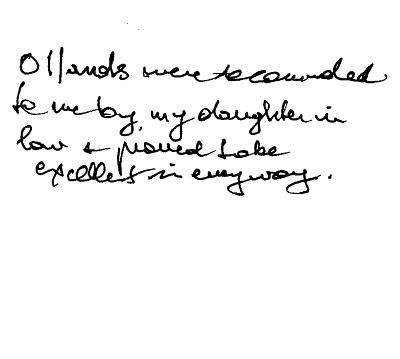 Ollands were recommended
to me by, my daughter in
law + proved to be
excellent in every way.